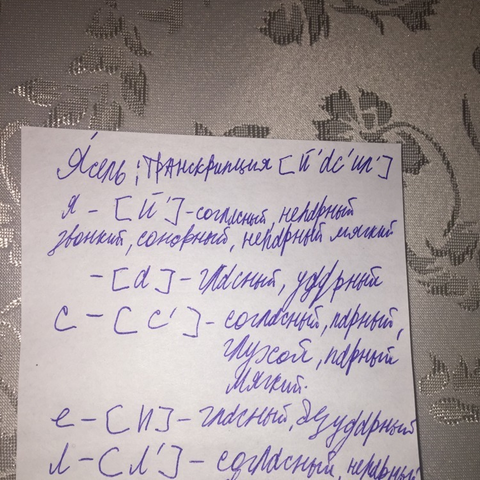 Я́сень; транскрипция [й'ас'ил']
я - [й'] - согласный, непарный
звонкий, сонорный, непарный мягкий
- [а] - гласный, ударный
с - [с'] - согласный, парный,
глухой, парный
мягкий.
е - [и] - гласный, безударный
л - [л'] - согласный, непарный